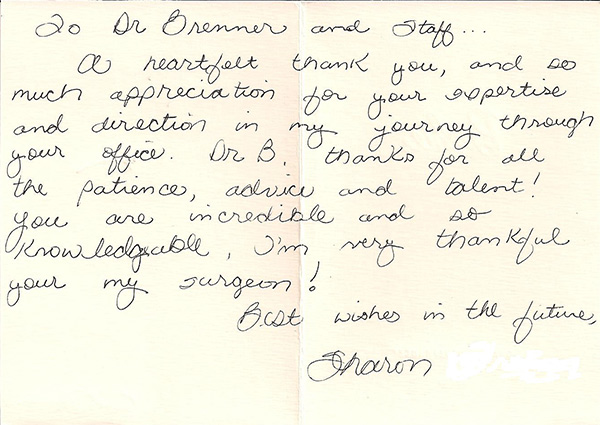 To Dr Brenner and Staff...
A heartfelt thank you, and so
much appreciation for your expertise
and direction in my journey through
your office. Dr B, thanks for all
the patience, advice and talent!
you are incredible and so
knowledgeable, I'm very thankful
your my surgeon!
Best wishes in the future,
Sharon